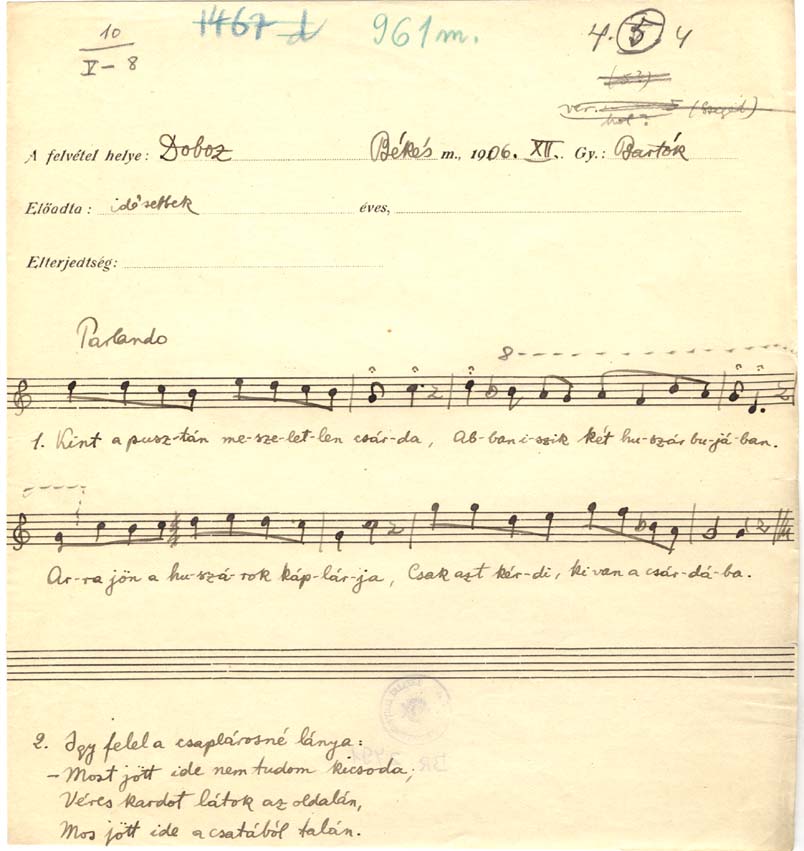 1467 d 961 m. 4. 5 4
10
V – 8
(Szeged)
hol?
A felvétel helye: Doboz Békés m., 1906. XII. Gy.: Bartók
Előadta: idősebbek éves,
Elterjedtség:
Parlando
8
1. Kint a pusz-tán me-sze-let-len csár-da, Ab-ban i-szik két hu-szár bu-já-ban.
Ar-ra jön a hu-szá-rok káp-lár-ja, Csak azt kér-di, ki van a csár-dá-ba.
2. Igy felel a csaplárosné lánya:
– Most jött ide nem tudom kicsoda;
Véres kardot látok az oldalán,
Mos jött ide a csatából talán.